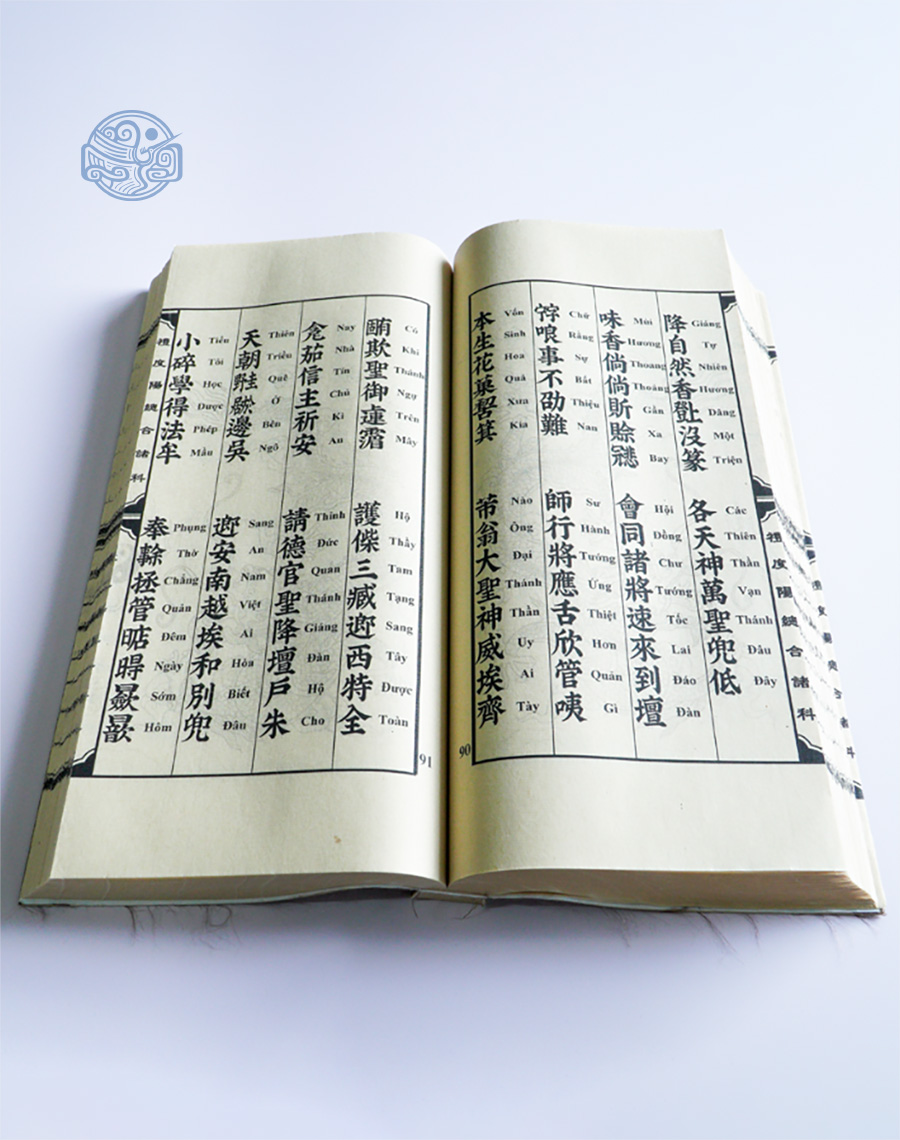 降自然香没篆
Giáng Tự Nhiên Hương Dâng Một Triện
各天神萬聖兜低
Các Thiên Thần Vạn Thánh Đâu Đây
味香倘倘賒
Mùi Hương Thoang Thoảng Gần Xa Bay
會同諸將速來到壇
Hội Đồng Chư Tướng Tốc Lai Đáo Đàn
哏事不劭難
Chữ Rằng Sự Bất Thiệu Nan
師行將應舌欣管咦
Sư Hành Tướng Ứng Thiệt Hơn Quản Gì
本生花菓箕
Vốn Sinh Hoa Quả Xưa Kia
芇翁大聖神威埃齊
Nào Ông Đại Thánh Thần Uy Ai Tày
90
禮度陽總合諸科
欺聖御蓮
Có Khi Thánh Ngự Trên Mây
護偨三臧西特全
Hộ Thầy Tam Tạng Sang Tây Được Toàn
茹信主祈安
Nay Nhà Tín Chủ Kì An
請德官聖降壇戶朱
Thỉnh Đức Quan Thánh Giáng Đàn Hộ Cho
天朝邊吳
Thiên Triều Quê Ở Bên Ngô
安南越埃和別兜
Sang An Nam Việt Ai Hòa Biết Đâu
小碎學得法牟
Tiểu Tôi Học Được Phép Mầu
奉拯管
Phụng Thờ Chẳng Quản Đêm Ngày Sớm Hôm
91
禮度陽總合諸科